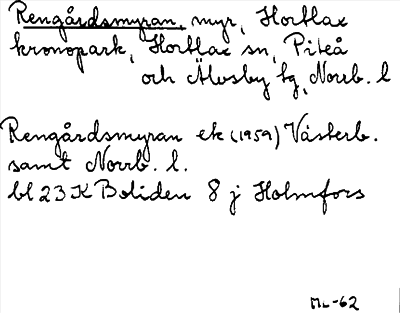 Rengårdsmyran, myr, Hortlax
kronopark, Hortlax sn, Piteå
och Älvsby tg, Norrb. l
Rengårdsmyran ek (1959) Västerb.
samt Norrb. l.
bl 23 K Boliden 8 j Holmfors
ML-62